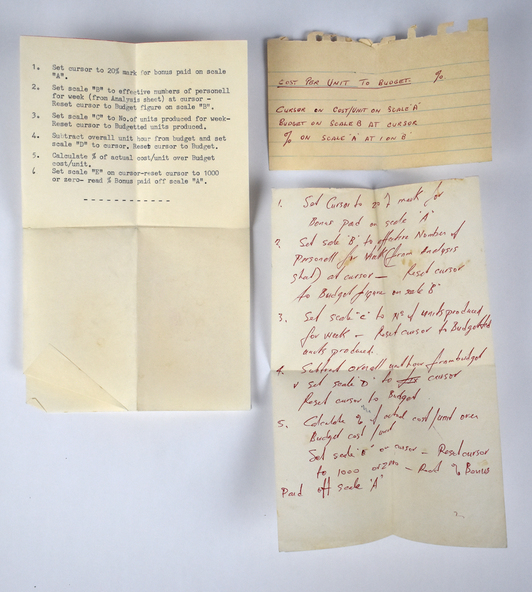 1. Set cursor to 20% mark for bonus paid on scale
"A".
2. Set scale "B" to effective numbers of personell
for week (from Analysis sheet) at cursor -
Reset cursor to Budget figure on scale "B".
3. Set scale "C" to No.of units produced for week-
Reset cursor to Budgetted units produced.
4. Subtract overall unit hour from budget and set
scale "D" to cursor. Reset cursor to Budget.
5. Calculate % of actual cost/unit over Budget
cost/unit.
6 Set scale "E" on cursor-reset cursor to 1000
or zero- read % Bonus paid off scale "A".
COST PER UNIT TO BUDGET. %
CURSOR ON COST/UNIT ON SCALE 'A'
BUDGET ON SCALE B AT CURSOR
% ON SCALE 'A' AT 1 ON B'
1. Set Cursor to 20% mark for
Bonus paid on scale 'A'
2. Set scale 'B' to effective Number of
Personell for Week (from Analysis
sheet) at cursor — Reset cursor
to Budget figure on scale 'B'
3. Set scale 'C' to No of units produced
for week — Reset cursor to Budgetted
units produced.
4. Subtract overall unit hour from budget
& set scale 'D' to cursor
Reset cursor to Budget
5. Calculate % of actual cost/unit over
Budget cost/unit
Set scale 'E' on cursor — Reset cursor
to 1000 or zero — Read % Bonus
Paid off scale 'A'